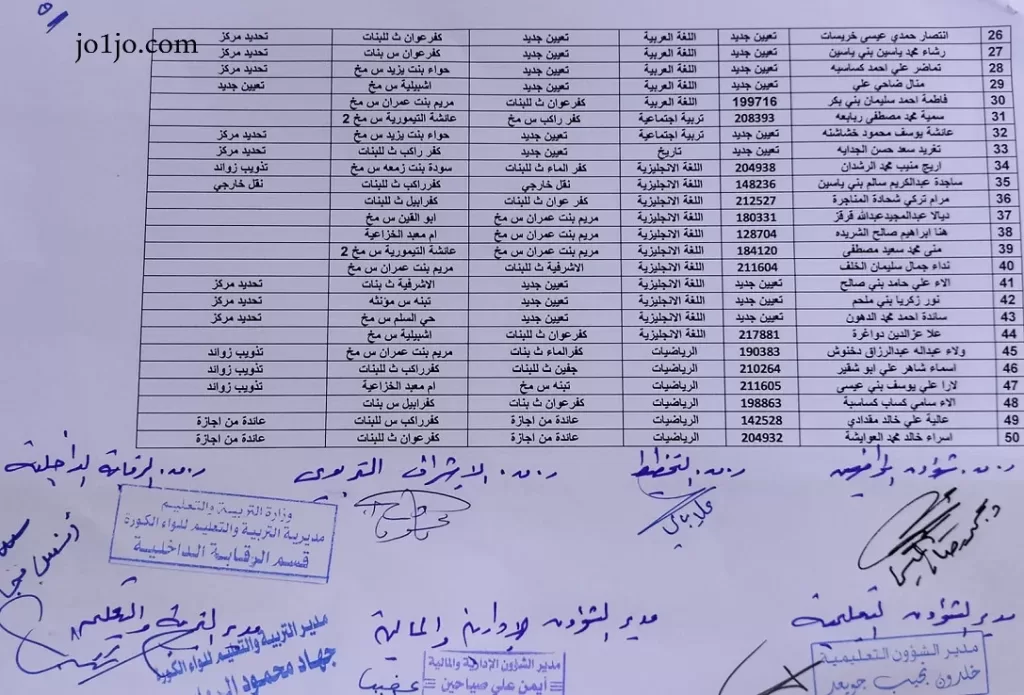 jo1jo.com
26 انتصار حمدي عيسى خريسات تعيين جديد اللغة العربية تعيين جديد كفرعوان ث للبنات تحديد مركز
27 رشاء محمد ياسين بني ياسين تعيين جديد اللغة العربية تعيين جديد كفرعوان س بنات تحديد مركز
28 تماضر علي احمد كساسبه تعيين جديد اللغة العربية تعيين جديد حواء بنت يزيد س مخ تحديد مركز
29 منال ضاحي علي تعيين جديد اللغة العربية تعيين جديد اشبيلية س مخ تعيين جديد
30 فاطمة احمد سليمان بني بكر 199716 اللغة العربية كفرعوان ث للبنات مريم بنت عمران س مخ
31 سمية محمد مصطفى ربابعه 208393 تربية اجتماعية كفر راكب س مخ عائشة التيمورية س مخ 2
32 عائشة يوسف محمود خشاشنه تعيين جديد تربية اجتماعية تعيين جديد حواء بنت يزيد س مخ تحديد مركز
33 تغريد سعد حسن الجدايه تعيين جديد تاريخ تعيين جديد كفر راكب ث للبنات تحديد مركز
34 اريج منيب محمد الرشدان 204938 اللغة الانجليزية كفر الماء ث للبنات سودة بنت زمعه س مخ تذويب زوائد
35 ساجدة عبدالكريم سالم بني ياسين 148236 اللغة الانجليزية نقل خارجي كفرراكب ث للبنات نقل خارجي
36 مرام تركي شحادة المناجرة 212527 اللغة الانجليزية كفر عوان ث للبنات كفرابيل ث للبنات
37 ديالا عبدالمجيدعبدالله قرقز 180331 اللغة الانجليزية مريم بنت عمران س مخ ابو القين س مخ
38 هنا ابراهيم صالح الشريده 128704 اللغة الانجليزية مريم بنت عمران س مخ ام معبد الخزاعية
39 منى محمد سعيد مصطفى 184120 اللغة الانجليزية مريم بنت عمران س مخ عائشة التيمورية س مخ 2
40 نداء جمال سليمان الخلف 211604 اللغة الانجليزية الاشرفية ث للبنات مريم بنت عمران س مخ
41 الاء علي حامد بني صالح تعيين جديد اللغة الانجليزية تعيين جديد الاشرفية ث بنات تحديد مركز
42 نور زكريا بني ملحم تعيين جديد اللغة الانجليزية تعيين جديد تبنه س مؤنثه تحديد مركز
43 ساندة احمد محمد الدهون تعيين جديد اللغة الانجليزية تعيين جديد حي السلم س مخ تحديد مركز
44 علا عزالدين دواغرة 217881 اللغة الانجليزية كفرعوان ث للبنات اشبيلية س مخ
45 ولاء عبداله عبدالرزاق دخنوش 190383 الرياضيات كفرالماء ث بنات مريم بنت عمران س مخ تذويب زوائد
46 اسماء شاهر علي ابو شقير 210264 الرياضيات جفين ث للبنات كفرراكب ث للبنات تذويب زوائد
47 لارا علي يوسف بني عيسى 211605 الرياضيات تبنه س مخ ام معبد الخزاعية تذويب زوائد
48 الاء سامي كساب كساسبة 198863 الرياضيات كفرعوان ث بنات كفرابيل س بنات
49 عالية علي خالد مقدادي 142528 الرياضيات عائدة من اجازة كفرراكب س للبنات عائدة من اجازة
50 اسراء خالد محمد العوايشة 204932 الرياضيات عائدة من اجازة كفرعوان ث للبنات عائدة من اجازة
ر.ق. شؤون الموظفين ر.ق. التخطيط ر.ق. الاشراف التربوي ر.ق. الرقابة الداخلية
وزارة التربية والتعليم
مديرية التربية والتعليم للواء الكورة
قسم الرقابة الداخلية
مدير الشؤون التعليمية مدير الشؤون الإدارية والمالية مدير التربية والتعليم
مدير الشؤون التعليمية
خلدون نجيب جويعد
مدير الشؤون الإدارية والمالية
أيمن علي صياحين
مدير التربية والتعليم للواء الكورة
جهاد محمود